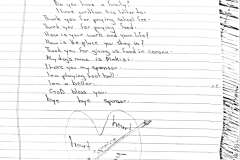 Do you have a family?
I have written this letter to:
Thank you for paying school fee.
Thank you for paying food.
How is your work and your life?
How is the place you stay in?
Thank you for giving us food in corona.
My dog's name is
I love you my sponsor
I am playing football.
I am a
God bless you.
bye bye sponsor.
heart